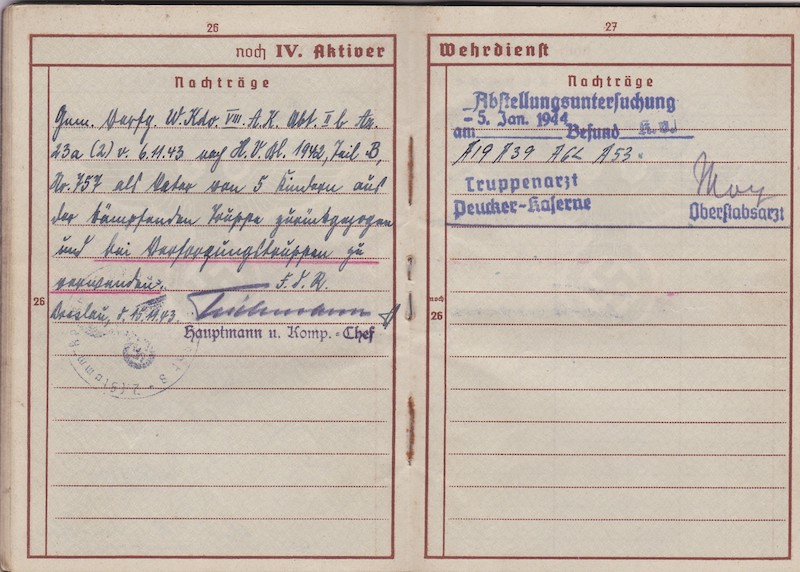 26
noch IV. Aktiver
Nachträge
Gem. Verfg. W.Kdo VIII A.K. Abt. II b Az.
23a (2) v. 6.11.43 nach H.V.Bl. 1942, Teil B,
Nr. 757 als Vater von 5 Kindern aus
der kämpfenden Truppe zurückgezogen
und bei Versorgungstruppen zu
verwenden.
F.d.R.
26
Breslau, d. 15.11.43
Hauptmann u. Komp.-Chef
27
Wehrdienst
Nachträge
Abstellungsuntersuchung
am - 5. Jan. 1944 Befund k.v.
A19 A39 A62 A53.
Truppenarzt
Peucker-Kaserne
Oberstabsarzt
noch
26